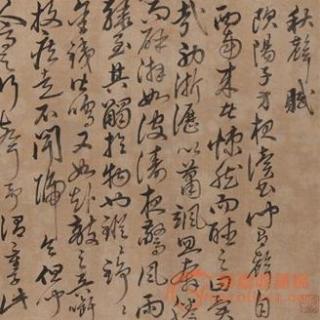 秋聲賦
歐陽子方夜讀書聞有聲自
西南來者悚然而聽之曰異
哉初淅瀝以蕭颯忽奔騰
而砰湃如波濤夜驚風雨
驟至其觸於物也鏦鏦錚錚
金鐵皆鳴又如赴敵之兵銜
枚疾走不聞號令但聞
人馬之行聲予謂童子此